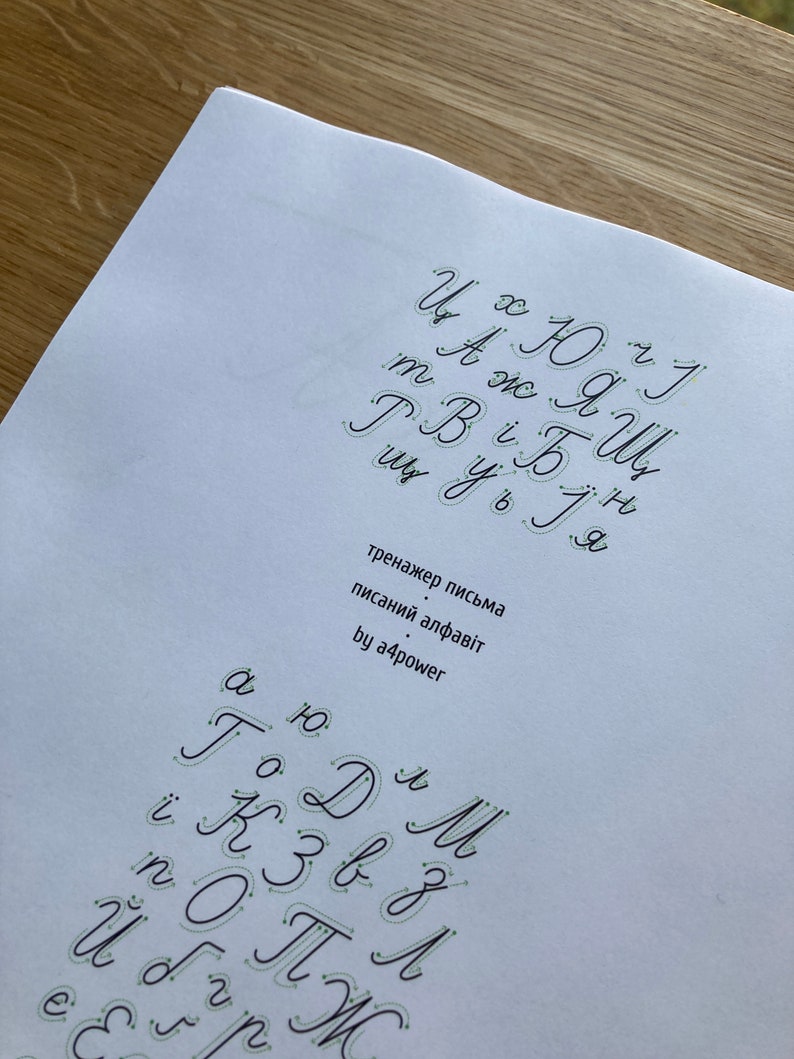 Ц х Ю ч І
А ж Я Щ
т В і Б
Г У ь Ї н
щ я
тренажер письма
·
писаний алфавіт
·
by a4power
а ю
Г о Д л М
ї К З в з
п О П Л
Й б г Ж
є Е р